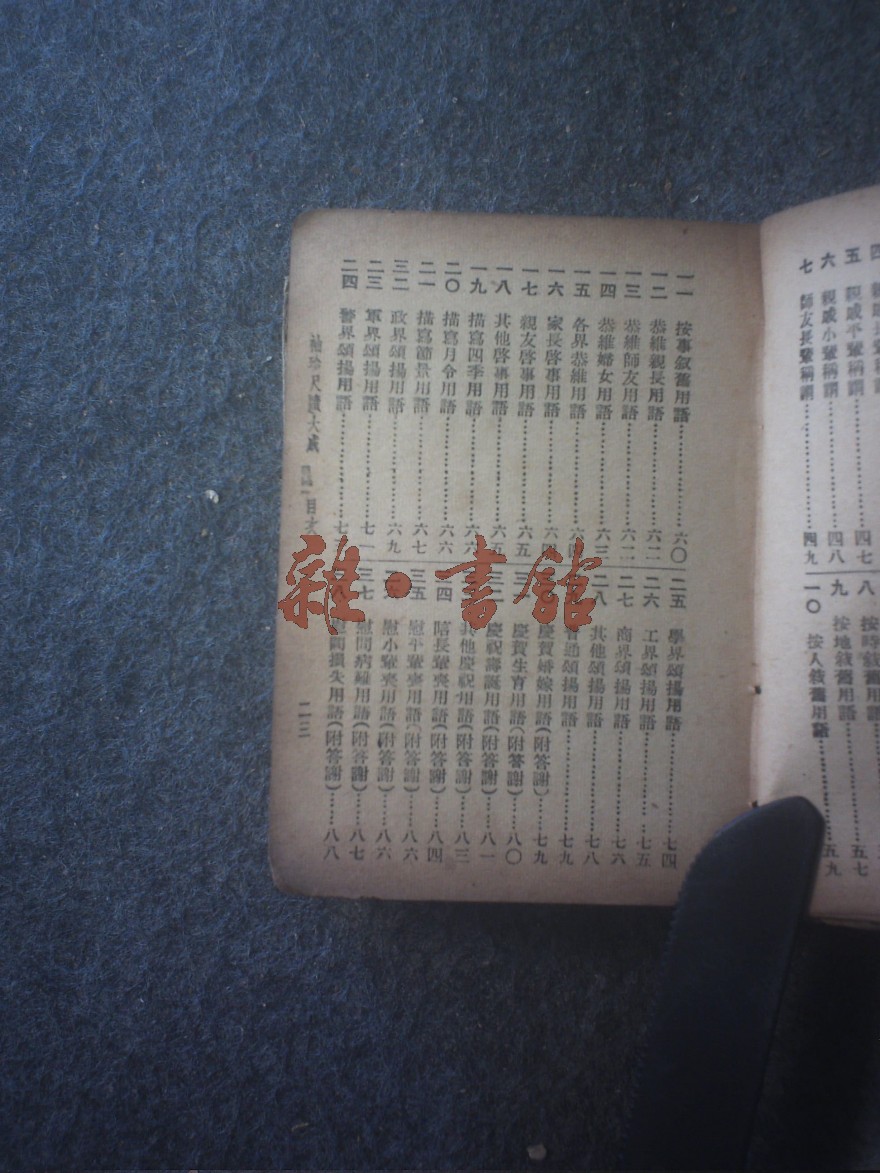 六 親戚小輩稱謂……四八
七 師友長輩稱謂……四九
一〇 按人敘舊用語……五九
一一 按事敘舊用語……六〇
一二 恭維親長用語……六二
一三 恭維師友用語……六二
一四 恭維婦女用語……六三
一五 各界恭維用語
一六 家長啓事用語
一七 親友啓事用語……六五
一八 其他啓事用語……六五
一九 描寫四季用語……六六
二〇 描寫月令用語……六六
二一 描寫節景用語……六七
政界頌揚用語……六九
二三 軍界頌揚用語……七一
二四 警界頌揚用語
二五 學界頌揚用語……七四
二六 工界頌揚用語……七五
二七 商界頌揚用語……七六
二八 其他頌揚用語……七八
普通頌揚用語……七九
慶賀婚嫁用語(附答謝)……七九
慶賀生育用語(附答謝)……八〇
慶祝壽誕用語(附答謝)……八一
其他慶祝用語(附答謝)……八三
長輩喪用語(附答謝)……八四
三五 慰平輩喪用語(附答謝)……八六
慰小輩喪用語(附答謝)……八六
三七 慰問病難用語(附答謝)……八七
慰問損失用語(附答謝)……八八
袖珍尺牘大成 目次
二三
雜·書館